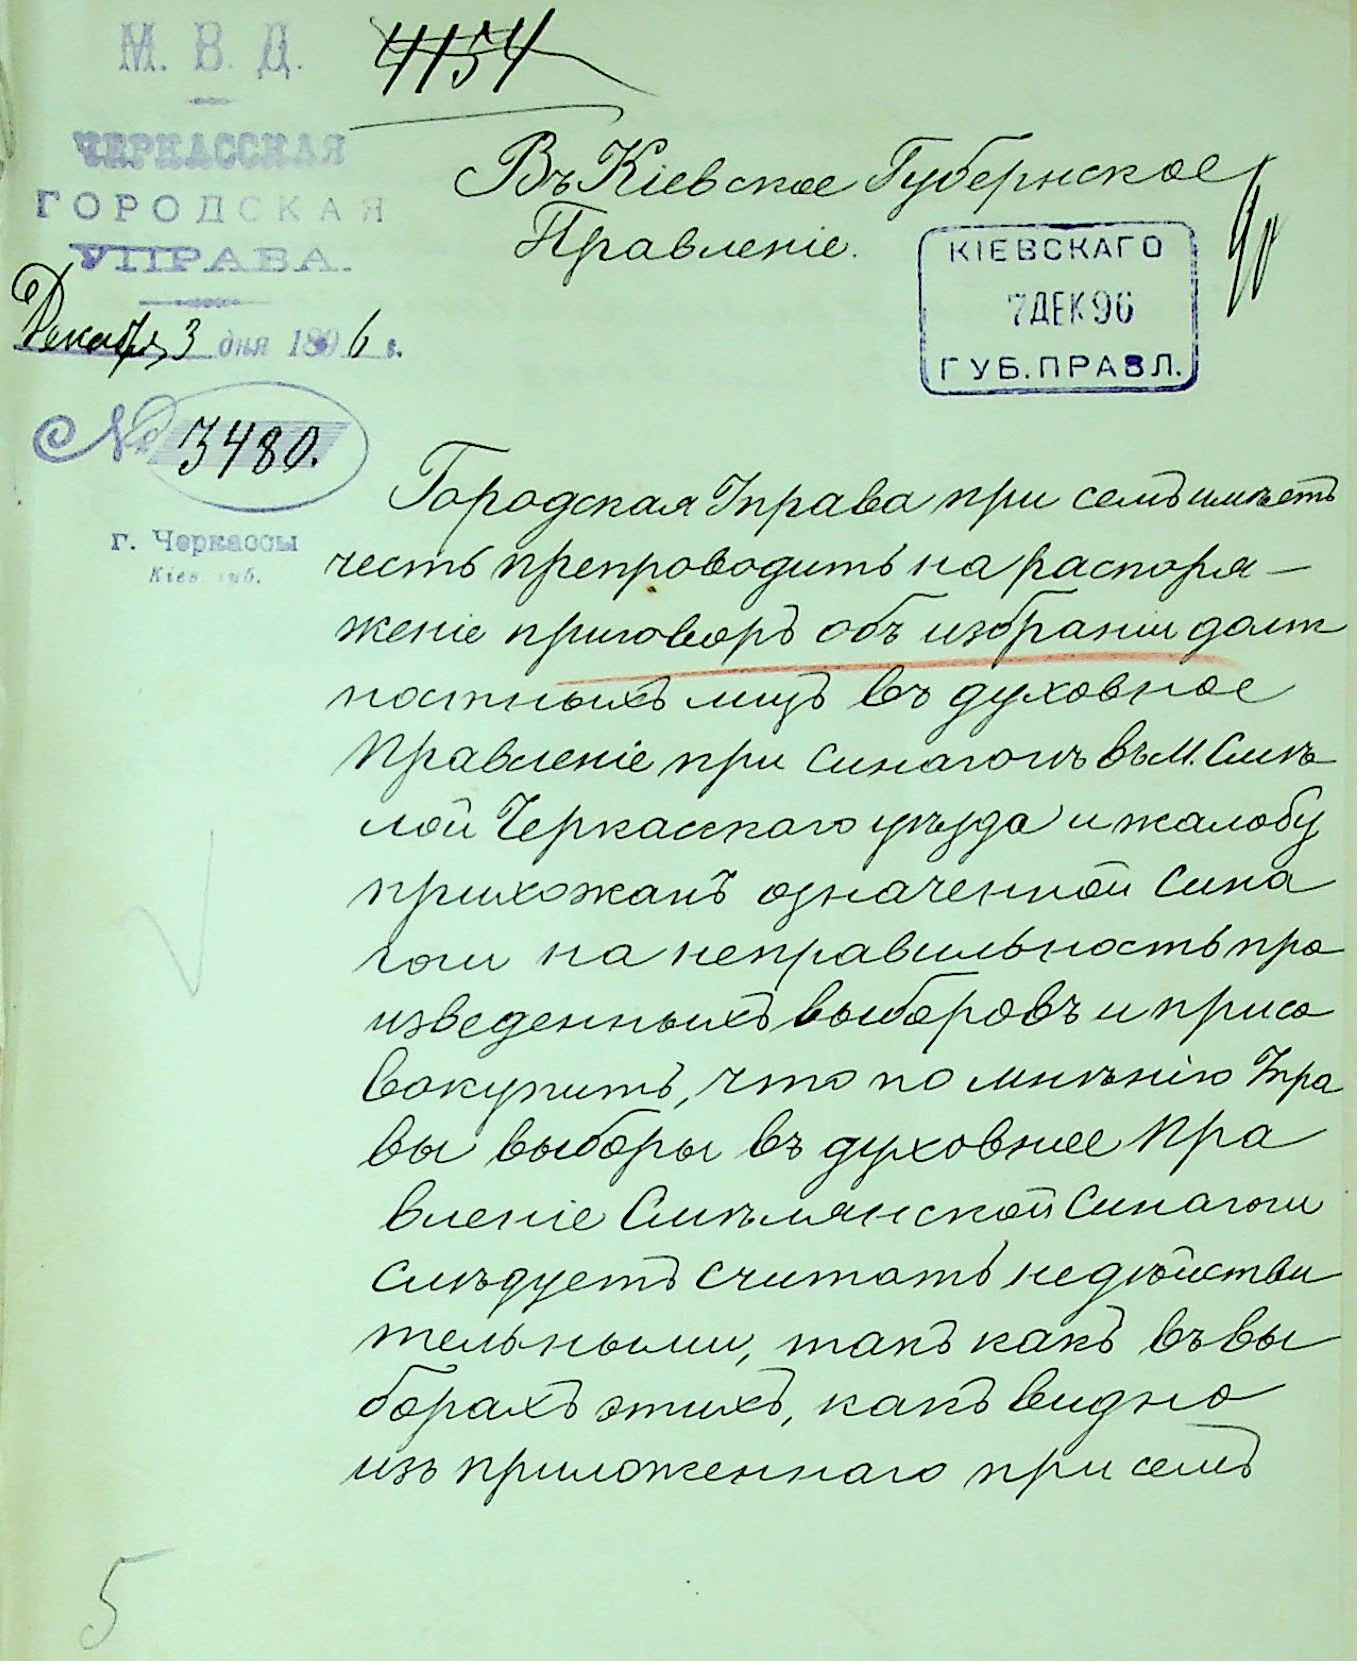 М. В. Д.
ЧЕРКАССКАЯ
ГОРОДСКАЯ
УПРАВА.
Декабря 3 дня 1896 г.
№ 3480.
г. Черкассы
Кіев. губ.
4154
Въ Кіевское Губернское
Правленіе.
КІЕВСКАГО
7 ДЕК 96
ГУБ. ПРАВЛ.
Городская Управа при семъ имѣетъ
честь препроводить на распоря-
женіе приговоръ объ избраніи долж
ностныхъ лицъ въ духовное
Правленіе при синагогѣ въ м. Смѣ
лой Черкасскаго уѣзда и жалобу
прихожанъ означенной Сина
гоги на неправильность про
изведенныхъ выборовъ и присо
вокупить, что по мнѣнію Упра
вы выборы въ духовное Пра
вленіе Смѣлянской Синагоги
слѣдуетъ считать недѣйстви
тельными, такъ какъ въ вы
борахъ этихъ, какъ видно
изъ приложеннаго при семъ
5